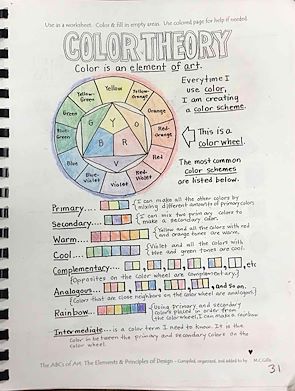 Use as a worksheet. Color & fill in empty areas. Use colored page for help if needed.
COLOR THEORY
Color is an element of art.
Everytime I
use color,
I am creating
a color scheme.
Yellow
Yellow-Orange
Orange
Red-Orange
Red
Red-Violet
Violet
Blue-Violet
Blue
Blue-Green
Green
Yellow-Green
Y
O
R
V
B
G
This is a
color wheel.
The most common
color schemes
are listed below.
Primary.... I can make all the other colors by
mixing different amounts of primary colors
Secondary.... I can mix two primary colors to
make a secondary color.
Warm.... Yellow and all the colors with red
and orange tones are warm.
Cool.... Violet and all the colors with
blue and green tones are cool.
Complementary... , , , etc
(Opposites on the color wheel are complementary.)
Analogous... , , and so on.
(Colors that are close neighbors on the color wheel are analogous.)
Rainbow... Using primary and secondary
colors placed in order from
the color wheel, I can make a rainbow
Intermediate... is a color term I need to know. It is the
color in between the primary and secondary colors on the
color wheel.
The ABCs of Art. The Elements & Principles of Design - Compiled, organized, and added to by M.C.Gillis
31